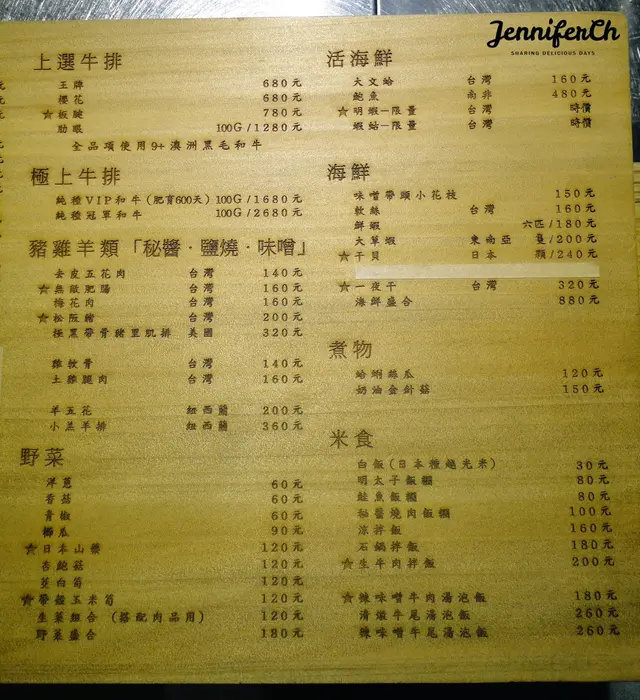 JenniferCh
SHARING DELICIOUS DAYS
上選牛排
王牌 680元
櫻花 680元
☆板腱 780元
肋眼 100G/1280元
全品項使用9+澳洲黑毛和牛
極上牛排
純種VIP和牛(肥育600天) 100G/1680元
純種冠軍和牛 100G/2680元
豬雞羊類「秘醬·鹽燒·味噌」
去皮五花肉 台灣 140元
☆無敵肥腸 台灣 160元
梅花肉 台灣 160元
☆松阪豬 台灣 200元
極黑帶骨豬里肌排 美國 320元
雞軟骨 台灣 140元
土雞腿肉 台灣 160元
羊五花 紐西蘭 200元
小羔羊排 紐西蘭 360元
野菜
洋蔥 60元
香菇 60元
青椒 60元
櫛瓜 90元
☆日本山藥 120元
杏鮑菇 120元
茭白筍 120元
☆帶殼玉米筍 120元
生菜組合 (搭配肉品用) 120元
野菜盛合 180元
活海鮮
大文蛤 台灣 160元
鮑魚 南非 480元
☆明蝦-限量 台灣 時價
蝦蛄-限量 台灣 時價
海鮮
味噌帶頭小花枝 150元
軟絲 台灣 160元
鮮蝦 六匹/180元
大草蝦 東南亞 隻/200元
☆干貝 日本 顆/240元
☆一夜干 台灣 320元
海鮮盛合 880元
煮物
蛤蜊絲瓜 120元
奶油金針菇 150元
米食
白飯(日本種越光米) 30元
明太子飯糰 80元
鮭魚飯糰 80元
秘醬燒肉飯糰 100元
涼拌飯 160元
石鍋拌飯 180元
☆生牛肉拌飯 200元
☆辣味噌牛肉湯泡飯 180元
清燉牛尾湯泡飯 260元
辣味噌牛尾湯泡飯 260元